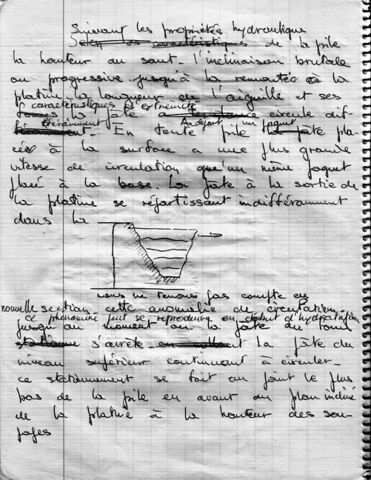 Suivant les propriétés hydrauliques
de la pile
la hauteur du saut - l'inclinaison brutale
ou progressive jusqu'à la remontée à la
platine la longueur de l'aiguille et ses
caractéristiques et extrémité
la pâte circule dif-
féremment - En tente pile un paquet
pâte pla-
cé à la surface a une plus grande
vitesse de circulation qu'un même paquet
placé à la base. La pâte à la sortie de
la platine se répartissant indifféremment
dans la
nous ne tenons pas compte
nouvelle section - cette anomalie de circulation
ce phénomène peut se reproduire en début d'hydratation
jusqu'au moment où la pâte du fond
s'arrête la pâte du
niveau supérieur continuant à circuler -
ce stationnement se fait au point le plus
bas de la pile en avant du plan incliné
de la platine à la hauteur des sou-
papes